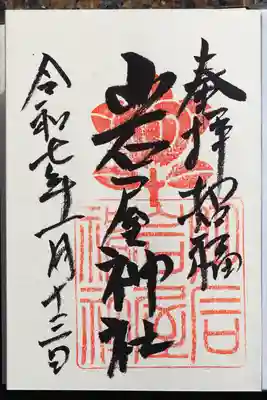 奉拝 招福
岩屋神社
令和七年一月十三日